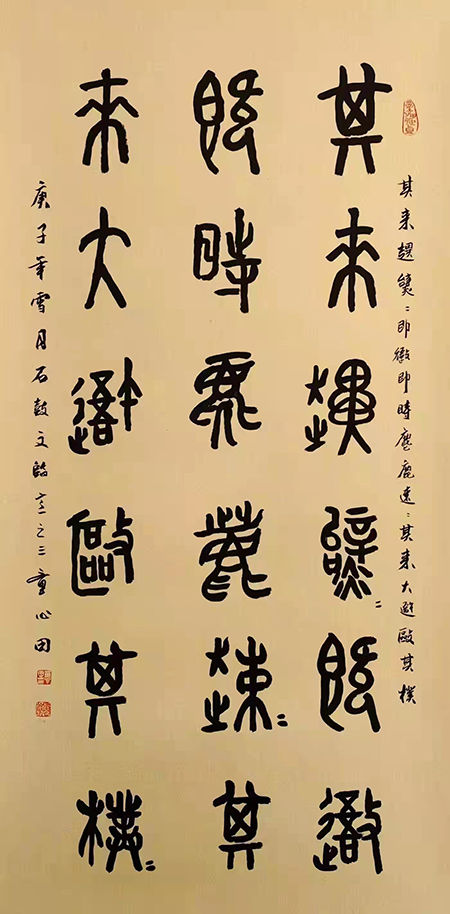 其来趩〻即即時麀鹿速〻其来大毆其樸
其来趩〻即
即時麀鹿速〻其
来大毆其樸〻
庚子年雪月石鼓文臨意之三童心田